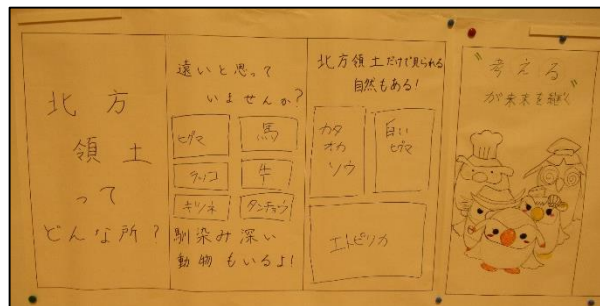 北方
領土
って
どんな所?
遠いと思って
いませんか?
ヒグマ
馬
ラッコ
牛
キツネ
タンチョウ
馴染み深い
動物もいるよ!
北方領土だけで見られる
自然もある!
カタ
オカ
ソウ
白い
ヒグマ
エトピリカ
"考える"
が未来を継ぐ